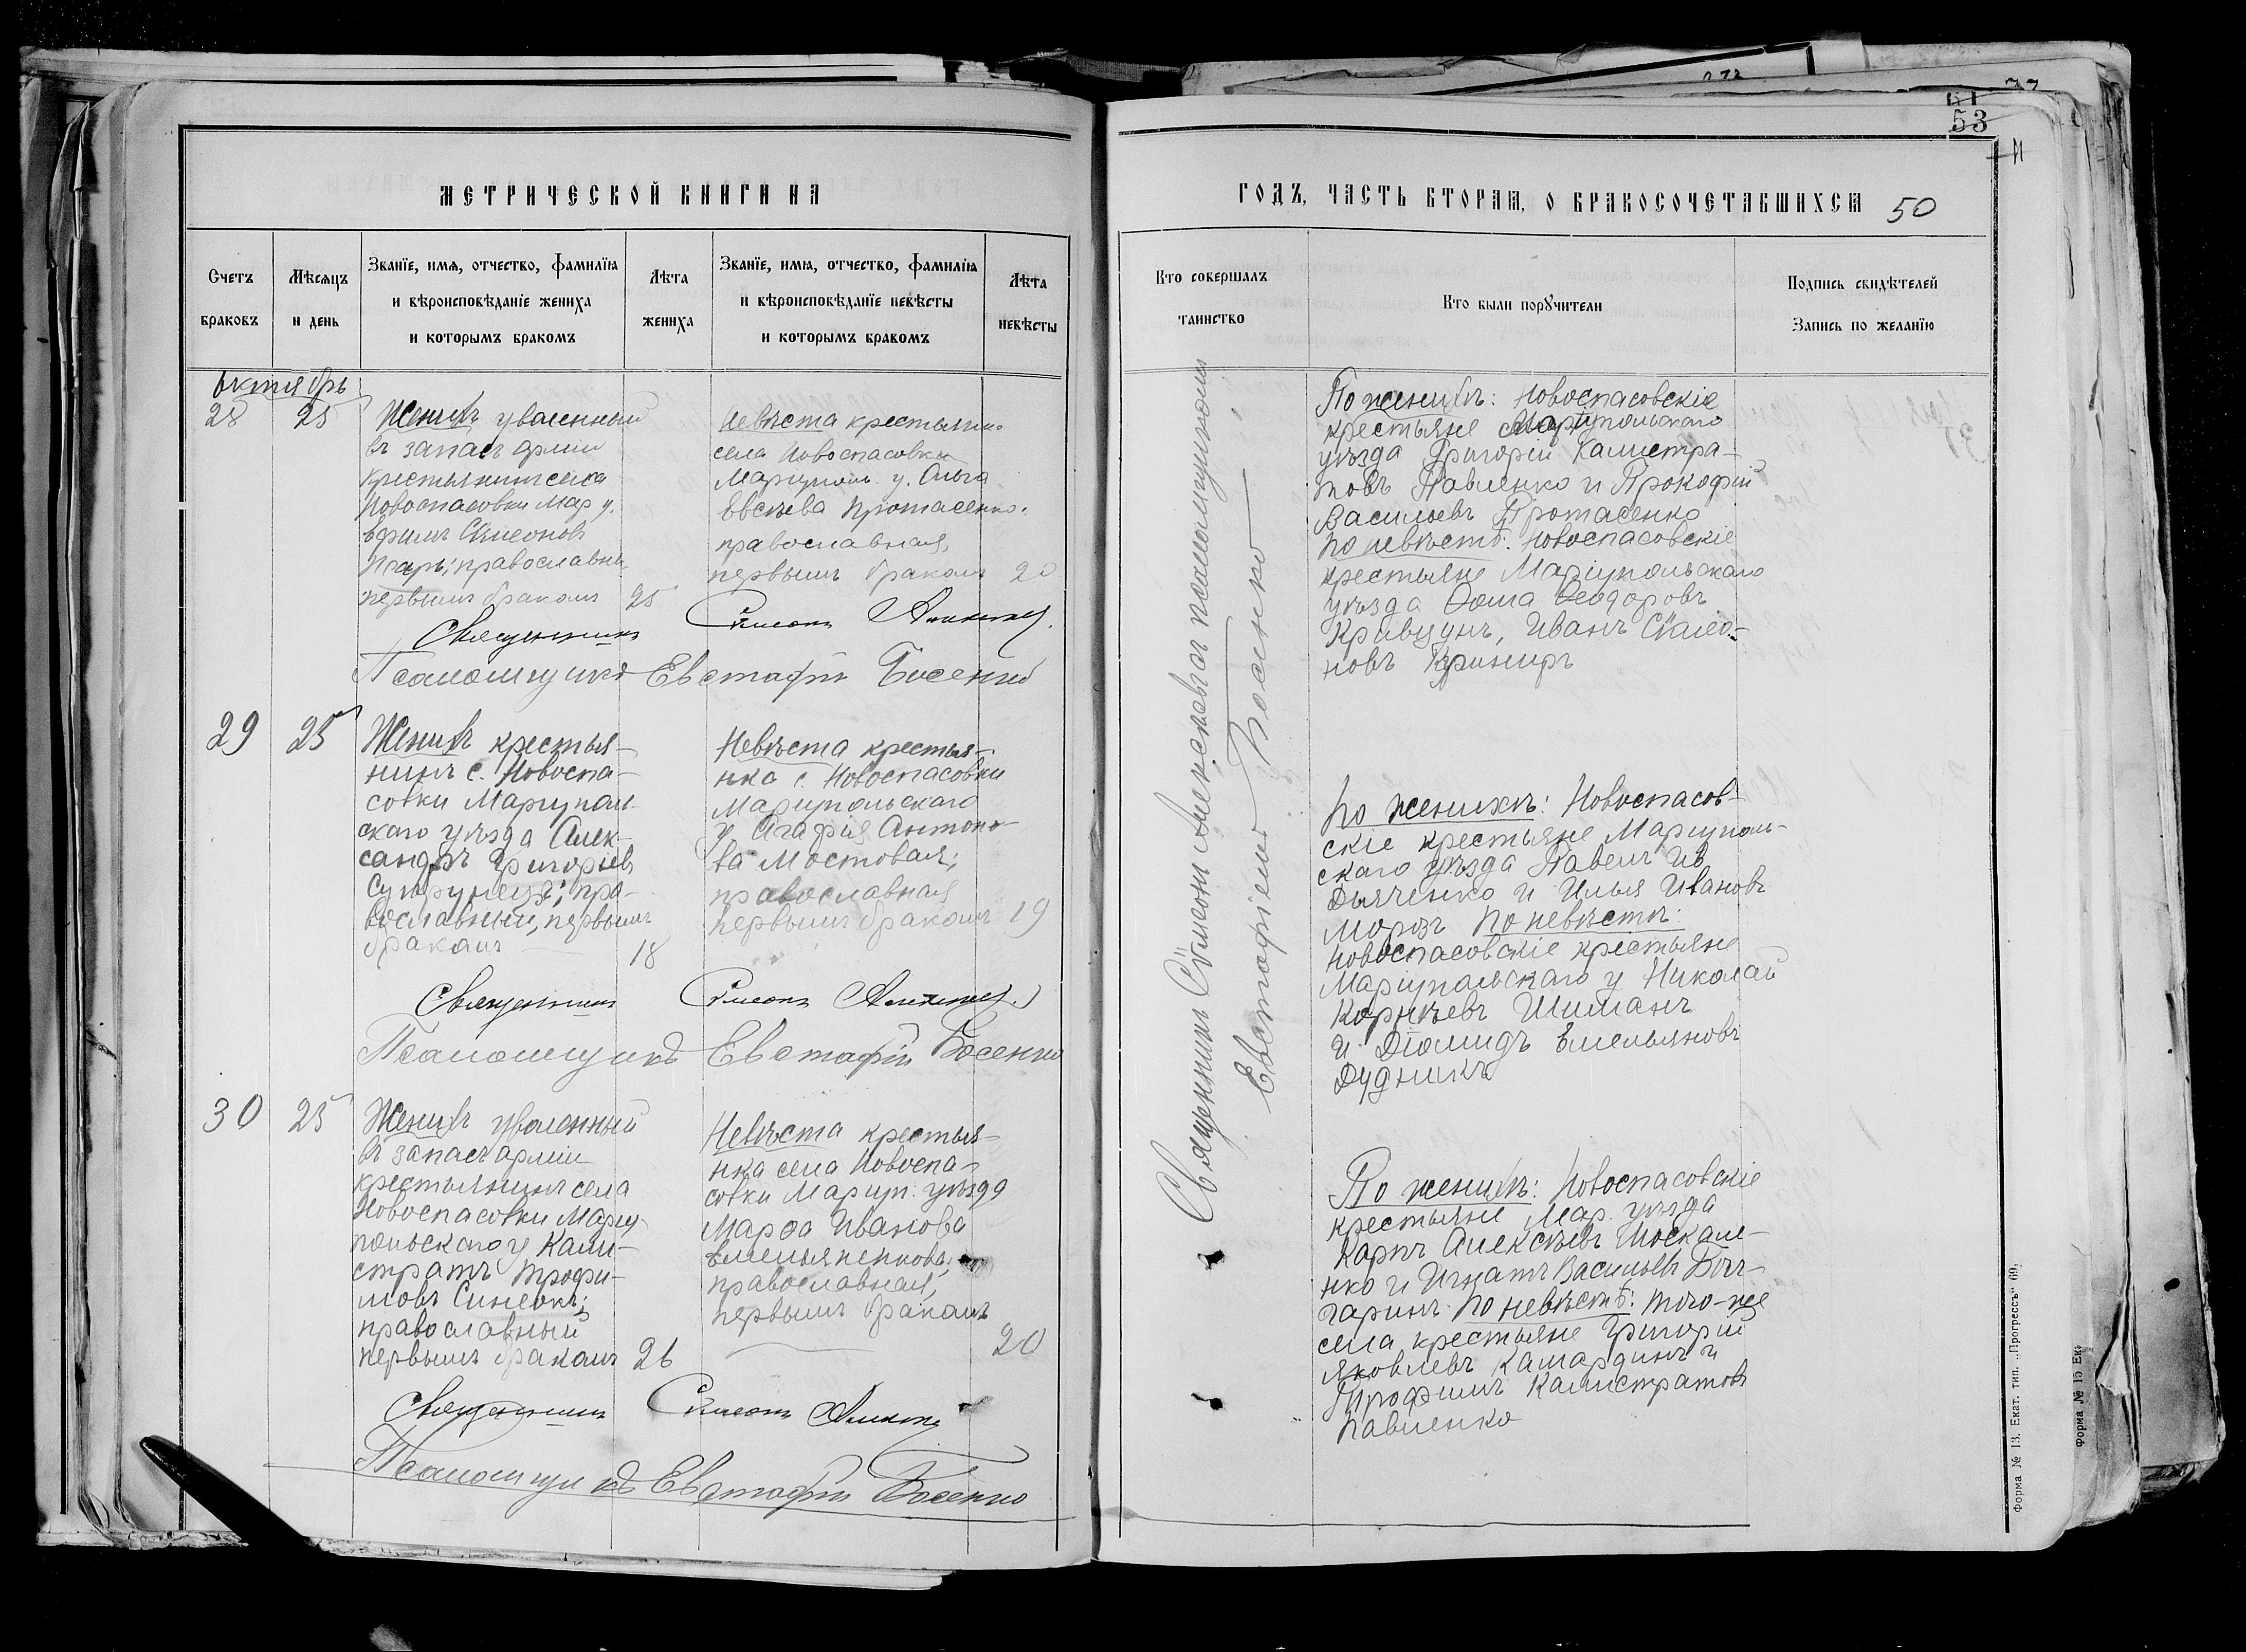 МЕТРИЧЕСКОЙ КНИГИ НА
Счетъ браковъ
Мѣсяцъ и день
Званїе, имя, отчество, фамилїя
и вѣроисповѣданїе жениха
и которымъ бракомъ
Лѣта жениха
Званїе, имя, отчество, фамилїя
и вѣроисповѣданїе невѣсты
и которымъ бракомъ
Лѣта невѣсты
октябрь
28 25
Женихъ уволенный
въ запасъ армии
крестьянинъ села
Новоспасовки Мар у.
Сѵмеоновъ
православн.
первымъ бракомъ 25
Невѣста крестьян.
села Новоспасовки
Мариупол. у. Ольга
Евсѣева Протасенко.
православная,
первымъ бракомъ 20
Священникъ Сѵмеонъ
Псаломщикъ Евстафій Босенко
29 25
Женихъ крестья-
нинъ с. Новоспа-
совки Мариуполь-
скаго уѣзда Алек-
сандръ Григорьев
Супрунецъ; пра-
вославный, первымъ
бракомъ 18
Невѣста крестья-
нка с. Новоспасовки
Мариупольскаго
у Агафія Антоно-
ва Мостовая;
православная
первымъ бракомъ 19
Священникъ Сѵмеонъ
Псаломщикъ Евстафій Босенко
30 25
Женихъ уволенный
въ запасъ армии
крестьянинъ села
Новоспасовки Мариу-
польскаго у Кали-
стратъ Трофи-
мовъ Синеокъ;
православный
первымъ бракомъ 26
Невѣста крестья-
нка села Новоспа-
совки Мариуп. уѣзда
Марѳа Иванова
Емельяненкова,
православная,
первымъ бракомъ
20
Священникъ Сѵмеонъ
Псаломщикъ Евстафій Босенко
53
50
ГОДЪ, ЧАСТЬ ВТОРАЯ, О БРАКОСОЧЕТАВШИХСЯ
Кто совершалъ таинство
Кто были порꙋчители
Подпись свидѣтелей
Запись по желанїю
Священникъ Сѵмеонъ съ псаломщикомъ
Евстафіемъ Босенко
По женихѣ: Новоспасовскіе
крестьяне Мариупольскаго
уѣзда Григорій Калистра-
товъ Павленко и Прокофій
Васильевъ Протасенко
по невѣстѣ: Новоспасовскіе
крестьяне Маріупольскаго
уѣзда Ѳома Ѳеодоровъ
Кривцунъ, Иванъ Сѵмео-
новъ
По женихѣ: Новоспасов-
скіе крестьяне Мариуполь-
скаго уѣзда Павелъ Ив
Дьяченко и Илья Ивановъ
Морозъ По невѣстѣ:
Новоспасовскіе крестьяне
Мариупольскаго у Николай
Корнѣевъ Шиманъ
и Діомидъ Емельяновъ
Дудникъ
По женихѣ: Новоспасовскіе
крестьяне Мар. уѣзда
Карпъ Алексѣевъ Москале-
нко и Игнатъ Васильевъ Бол-
гаринъ по невѣстѣ: того-же
села крестьяне Григорій
Яковлевъ Камардинъ и
Трофимъ Калистратовъ
Павленко
Форма № 13. Екат. тип. „Прогрессъ" 69.
Форма № 15 Ек